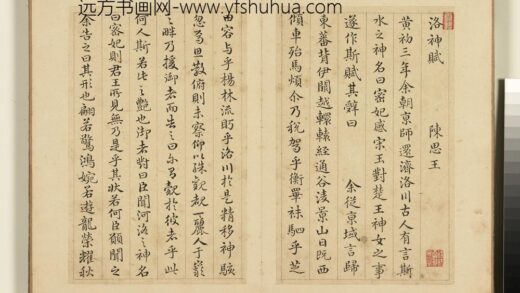 远方书画网-www.yfshuhua.com
洛神賦
陳思王
黃初三年余朝京師還濟洛川古人有言斯
水之神名曰宓妃感宋玉對楚王神女之事
遂作斯賦其辭曰 余從京域言歸
東蕃背伊闕越轘轅經通谷陵景山日既西
傾車殆馬煩尒乃稅駕乎蘅皋秣駟乎芝
田容與乎楊林流眄乎洛川於是精移神駭
忽焉思散俯則未察仰以殊觀覩一麗人于巖
之畔乃援御者而告之曰尒有覿於彼者乎此
何人斯若此之艷也御者對曰臣聞河洛之神名
曰宓妃則君王所見無乃是乎其狀若何臣願聞之
余告之曰其形也翩若驚鴻婉若遊龍榮耀秋